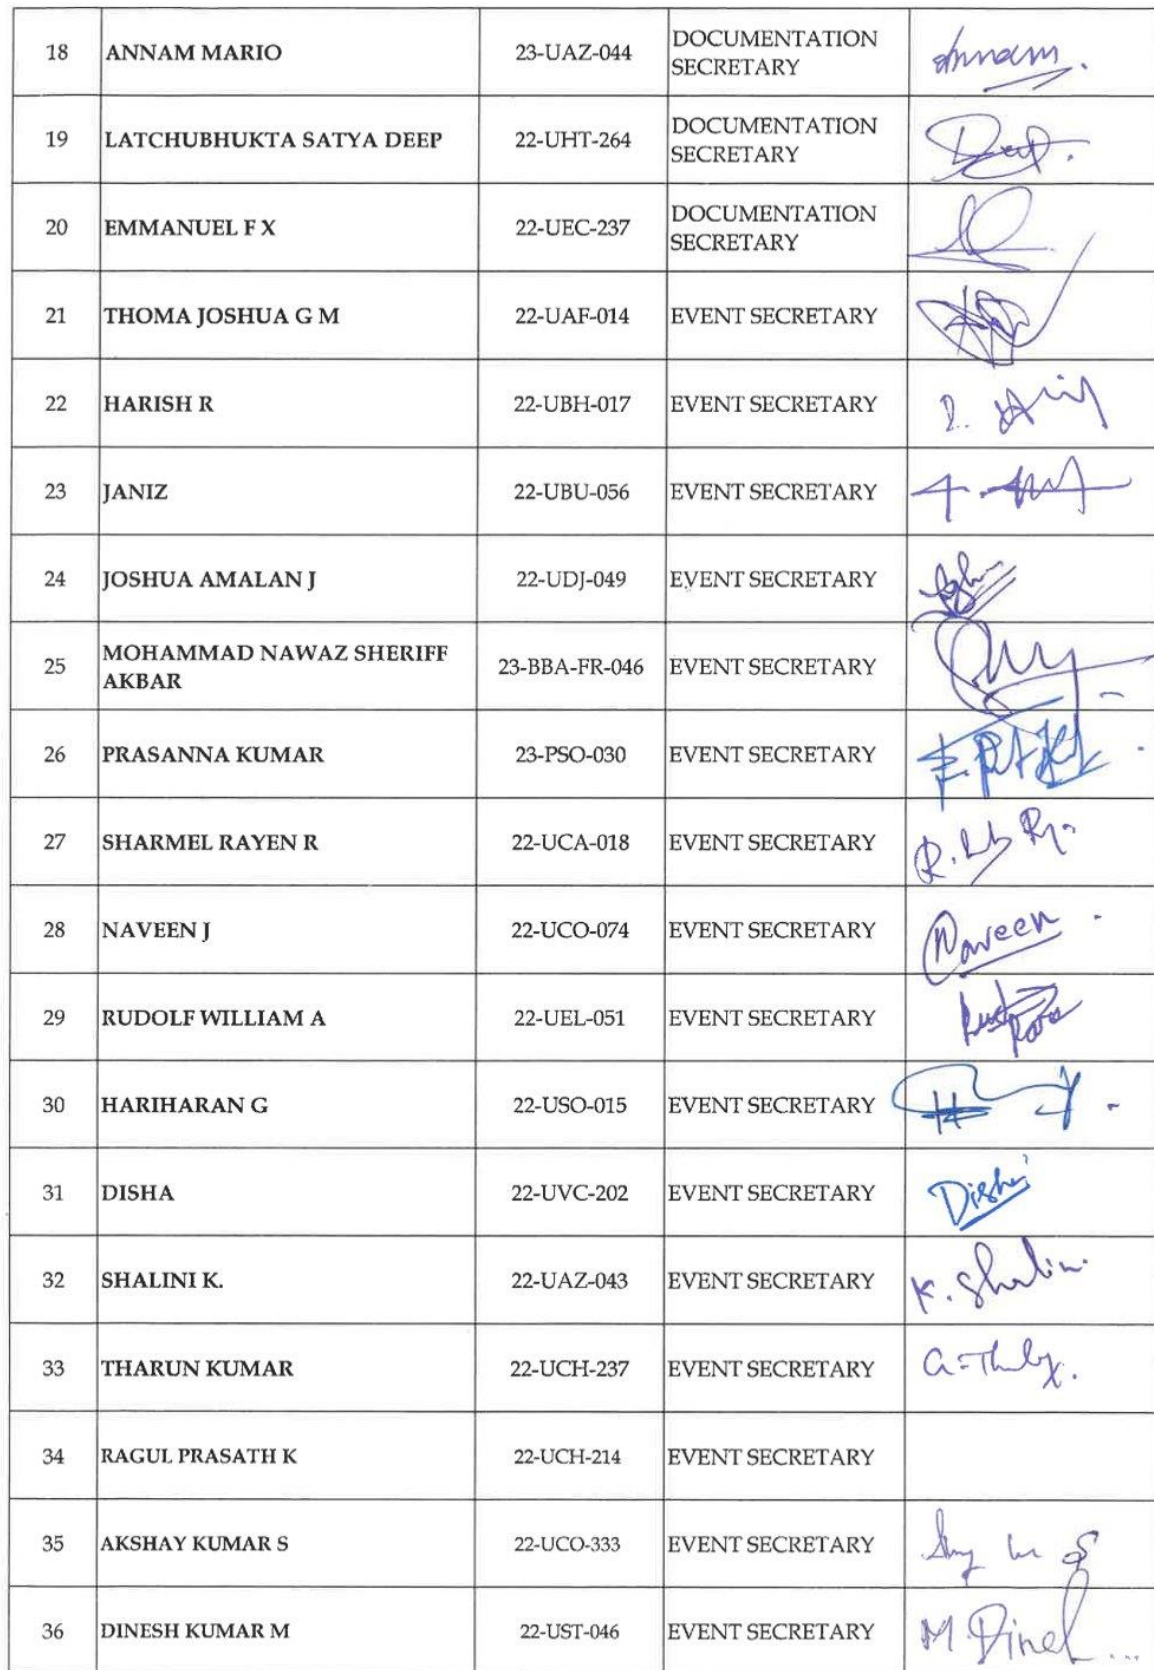 18 ANNAM MARIO 23-UAZ-044 DOCUMENTATION
SECRETARY Annam.
19 LATCHUBHUKTA SATYA DEEP 22-UHT-264 DOCUMENTATION
SECRETARY Deep.
20 EMMANUEL F X 22-UEC-237 DOCUMENTATION
SECRETARY
21 THOMA JOSHUA G M 22-UAF-014 EVENT SECRETARY
22 HARISH R 22-UBH-017 EVENT SECRETARY
23 JANIZ 22-UBU-056 EVENT SECRETARY
24 JOSHUA AMALAN J 22-UDJ-049 EVENT SECRETARY
25 MOHAMMAD NAWAZ SHERIFF
AKBAR 23-BBA-FR-046 EVENT SECRETARY
26 PRASANNA KUMAR 23-PSO-030 EVENT SECRETARY
27 SHARMEL RAYEN R 22-UCA-018 EVENT SECRETARY
28 NAVEEN J 22-UCO-074 EVENT SECRETARY Naveen
29 RUDOLF WILLIAM A 22-UEL-051 EVENT SECRETARY
30 HARIHARAN G 22-USO-015 EVENT SECRETARY
31 DISHA 22-UVC-202 EVENT SECRETARY Disha
32 SHALINI K. 22-UAZ-043 EVENT SECRETARY K. Shalini
33 THARUN KUMAR 22-UCH-237 EVENT SECRETARY
34 RAGUL PRASATH K 22-UCH-214 EVENT SECRETARY
35 AKSHAY KUMAR S 22-UCO-333 EVENT SECRETARY
36 DINESH KUMAR M 22-UST-046 EVENT SECRETARY M. Dinesh